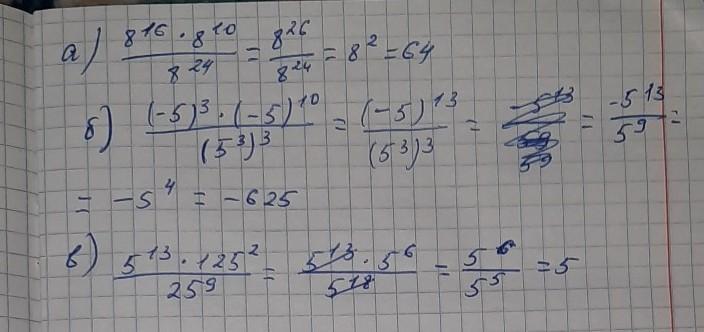 а) (8^16 · 8^10)/(8^24) = 8^26/8^24 = 8^2 = 64
б) ((-5)^3 · (-5)^10)/((5^3)^3) = (-5)^13/(5^3)^3 = = -5^13/5^9 =
= -5^4 = -625
в) (5^13 · 125^2)/(25^9) = (5^13 · 5^6)/(5^18) = 5^6/5^5 = 5